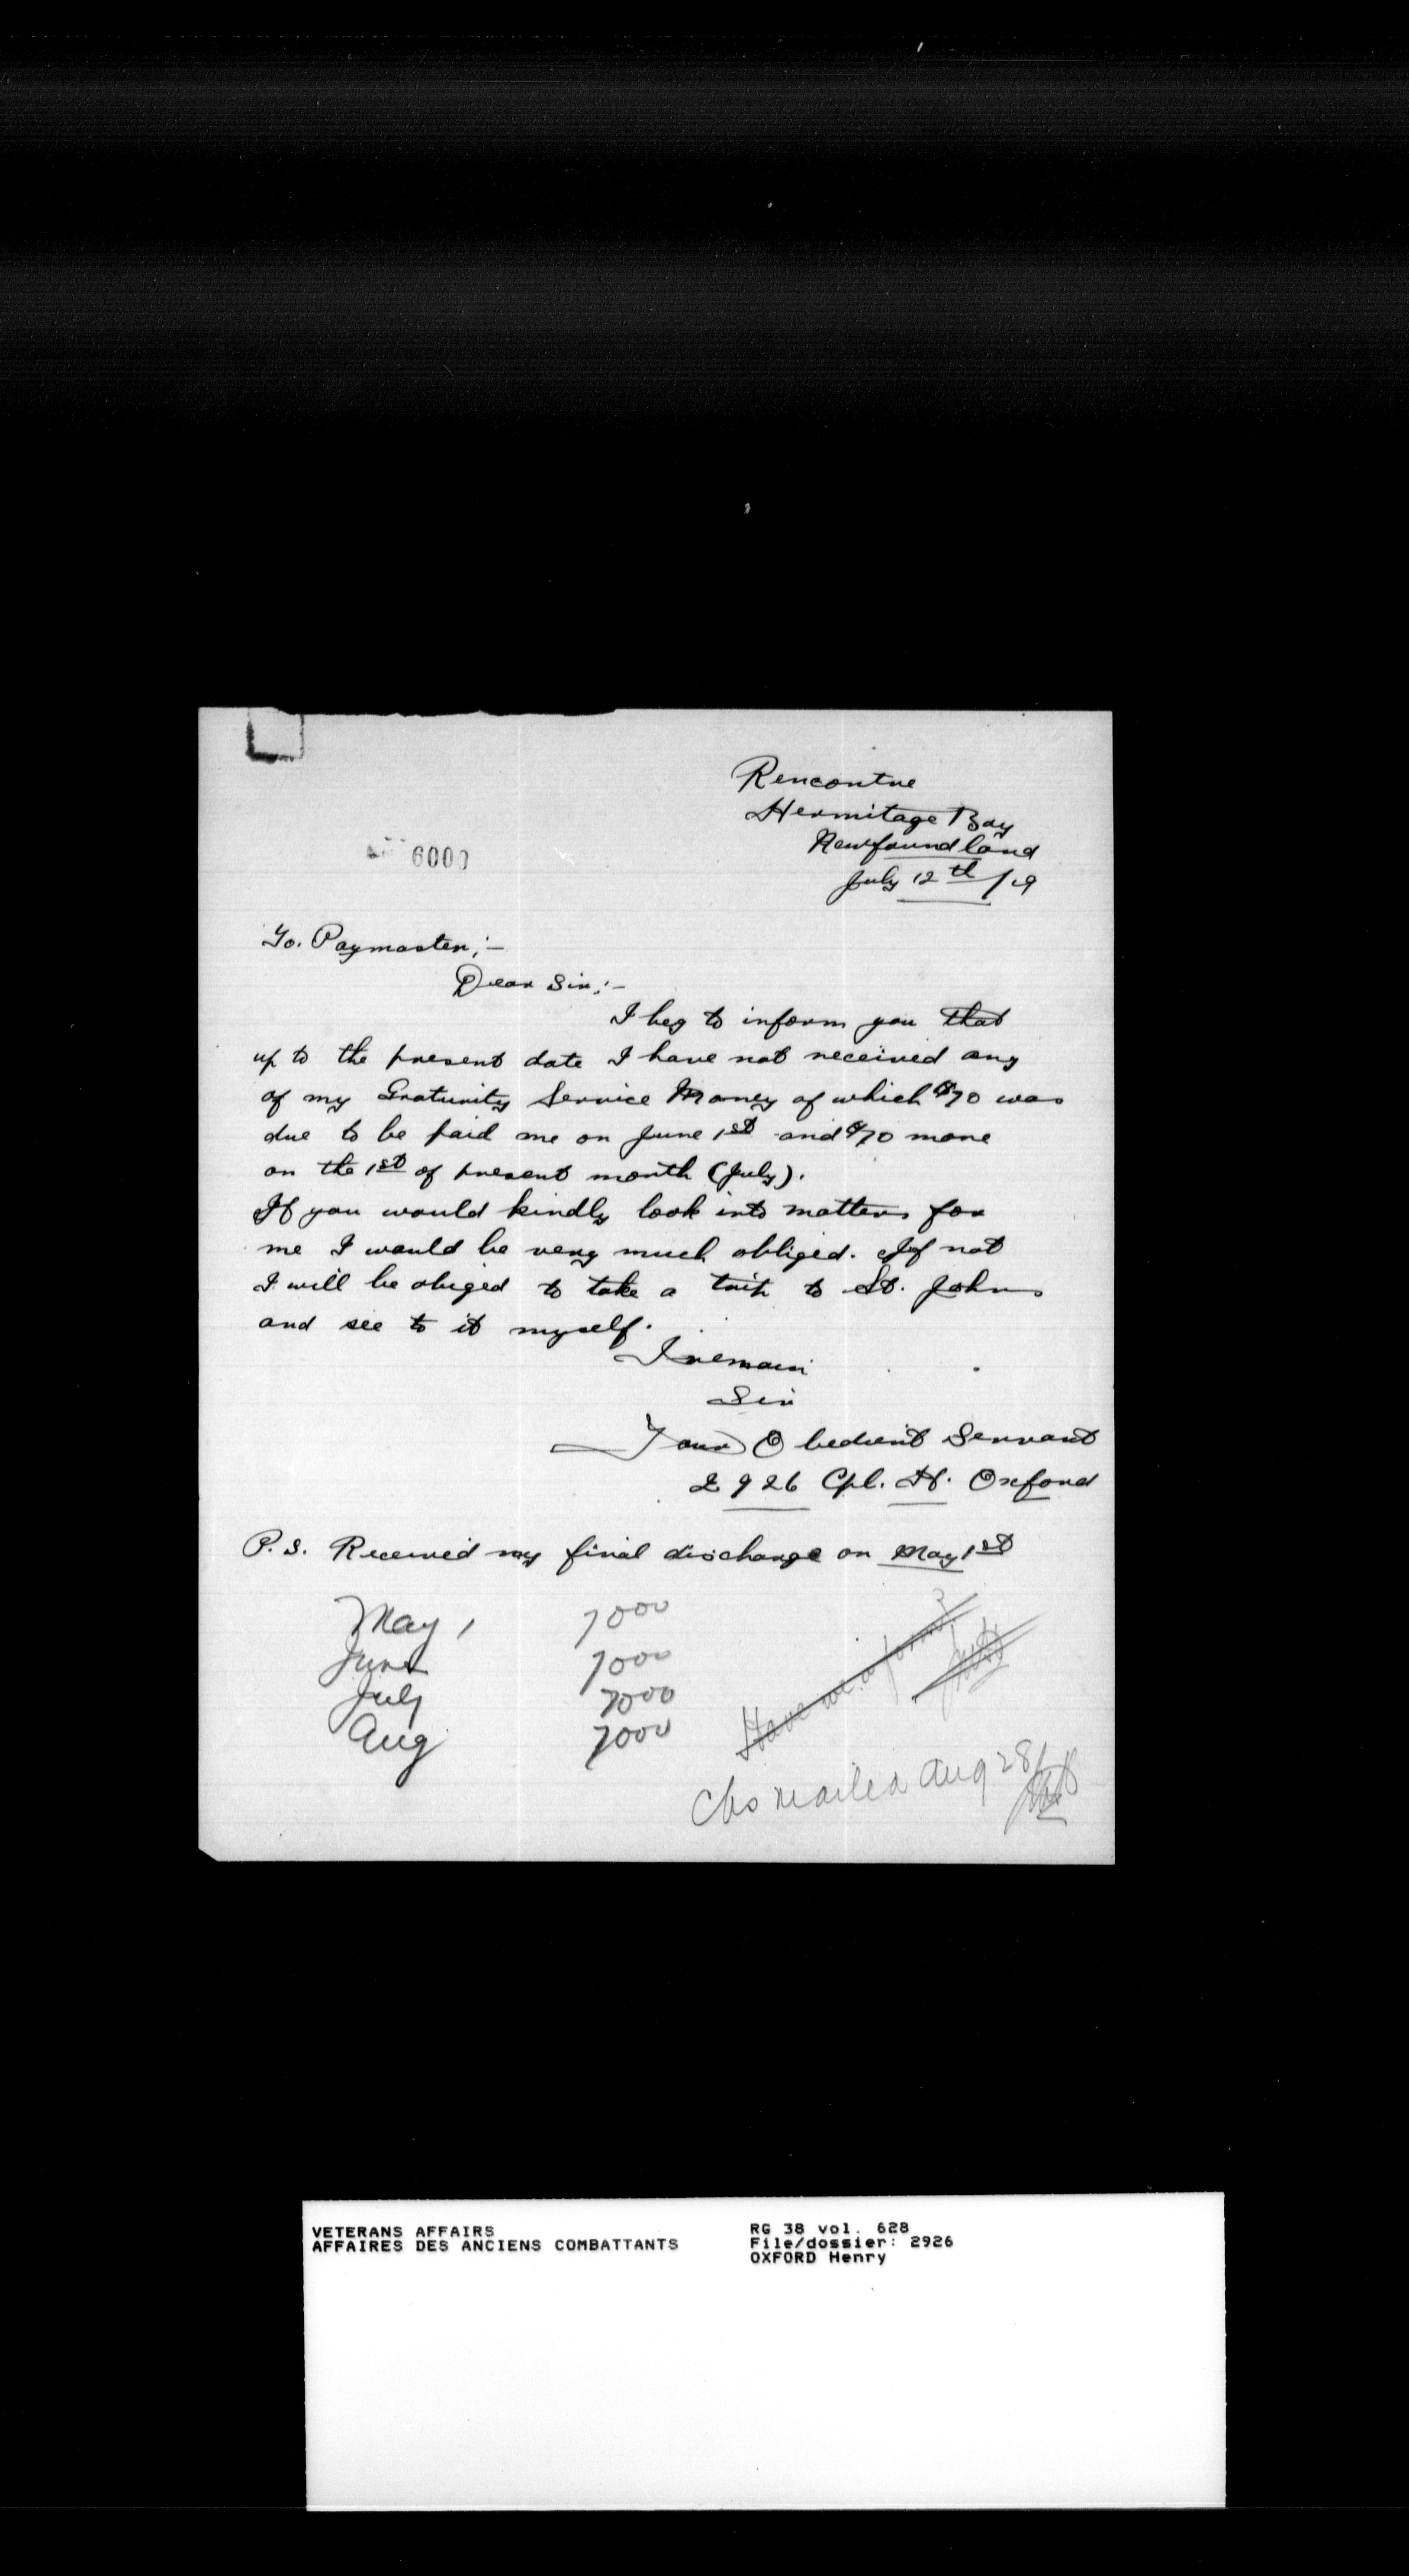 Rencontre
Hermitage Bay
Newfoundland
July 12th/19
6000
To. Paymaster;-
Dear Sir;-
I beg to inform you that
up to the present date I have not received any
of my Gratunity Service Money of which $70 was
due to be paid me on June 1st and $70 more
on the 1st of present month (July).
If you would kindly look into matters for
me I would be very much obliged. If not
I will be obiged to take a trip to St. Johns
and see to it myself.
I remain
Sir
Your Obedient Servant
2926 Cpl. H. Oxford
P.S. Received my final discharge on May 1st
May 1 7000
June 7000
July 7000
Aug 7000
Have we a form?
Cks mailed Aug 28/
VETERANS AFFAIRS
AFFAIRES DES ANCIENS COMBATTANTS
RG 38 vol. 628
File/dossier: 2926
OXFORD Henry